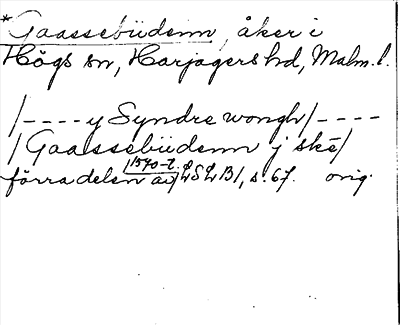 *Gaassebüdenn, åker i
Högs sn, Harjagers hd, Malm. l.
/----y Syndre wongh/----
/Gaassebüdenn j skê/
förra delen av 1570-t. LSLB/, s. 67. orig.